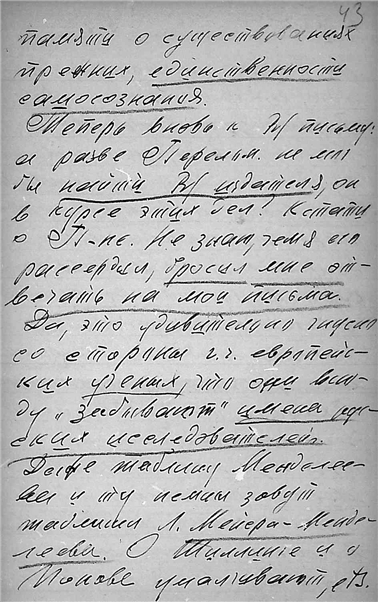 43
памяти о существованиях
прежних, единственности
самосознания.
Теперь вновь к В/ письму:
а разве Перельм. не мог
бы найти В/ издателя, он
в курсе этих дел? Кстати
о П-не. Не знаю, чем я его
рассердил, бросил мне от-
вечать на мои письма.
Да, это удивительно гнусно
со стороны г.г. европейс-
ких ученых, что они всю-
ду „забывают" имена рус-
ских исследователей.
Даже таблицу Менделее-
ва и ту немцы зовут
таблицей Л. Мейера-Менде-
леева. О Шиллинге и о
Попове умалчивают, etз.